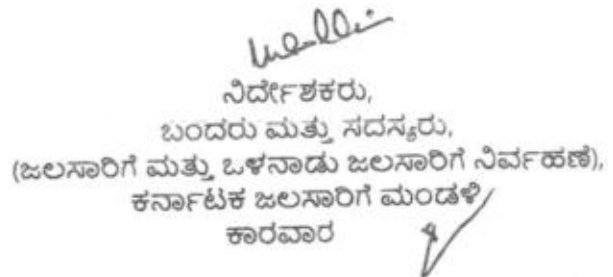 ನಿರ್ದೇಶಕರು,
ಬಂದರು ಮತ್ತು ಸದಸ್ಯರು,
(ಜಲಸಾರಿಗೆ ಮತ್ತು ಒಳನಾಡು ಜಲಸಾರಿಗೆ ನಿರ್ವಹಣೆ),
ಕರ್ನಾಟಕ ಜಲಸಾರಿಗೆ ಮಂಡಳಿ
ಕಾರವಾರ